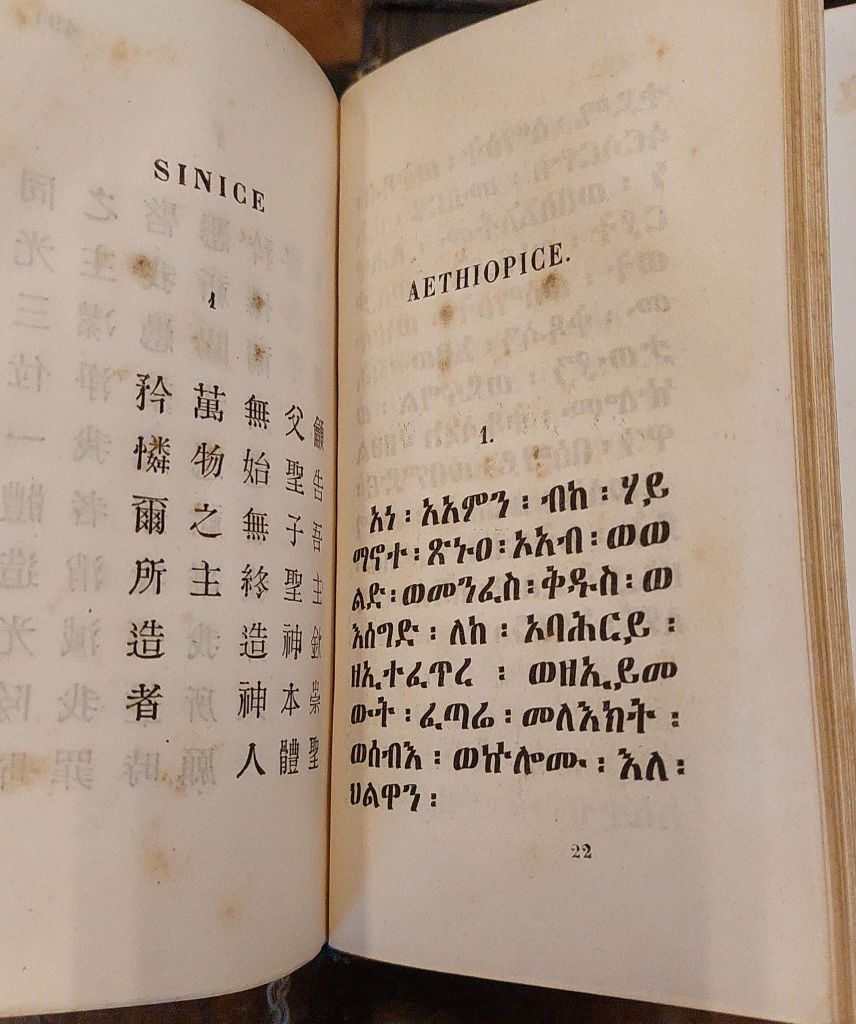 SINICE
1
告吾主崇聖
父聖子聖神本體
無始無終造神人
萬物之主
矜憐爾所造者
AETHIOPICE.
1.
አነ ፡ አአምን ፡ ብከ ፡ ሃይ
ማኖተ ፡ ጽኑዐ ፡ ኦአብ ፡ ወወ
ልድ ፡ ወመንፈስ ፡ ቅዱስ ፡ ወ
እሰግድ ፡ ለከ ፡ ኦባሕርይ ፡
ዘኢተፈጥረ ፡ ወዘኢይመ
ውት ፡ ፈጣሬ ፡ መለእክት ፡
ወሰብእ ፡ ወኵሎሙ ፡ እለ ፡
ህልዋን ፡
22